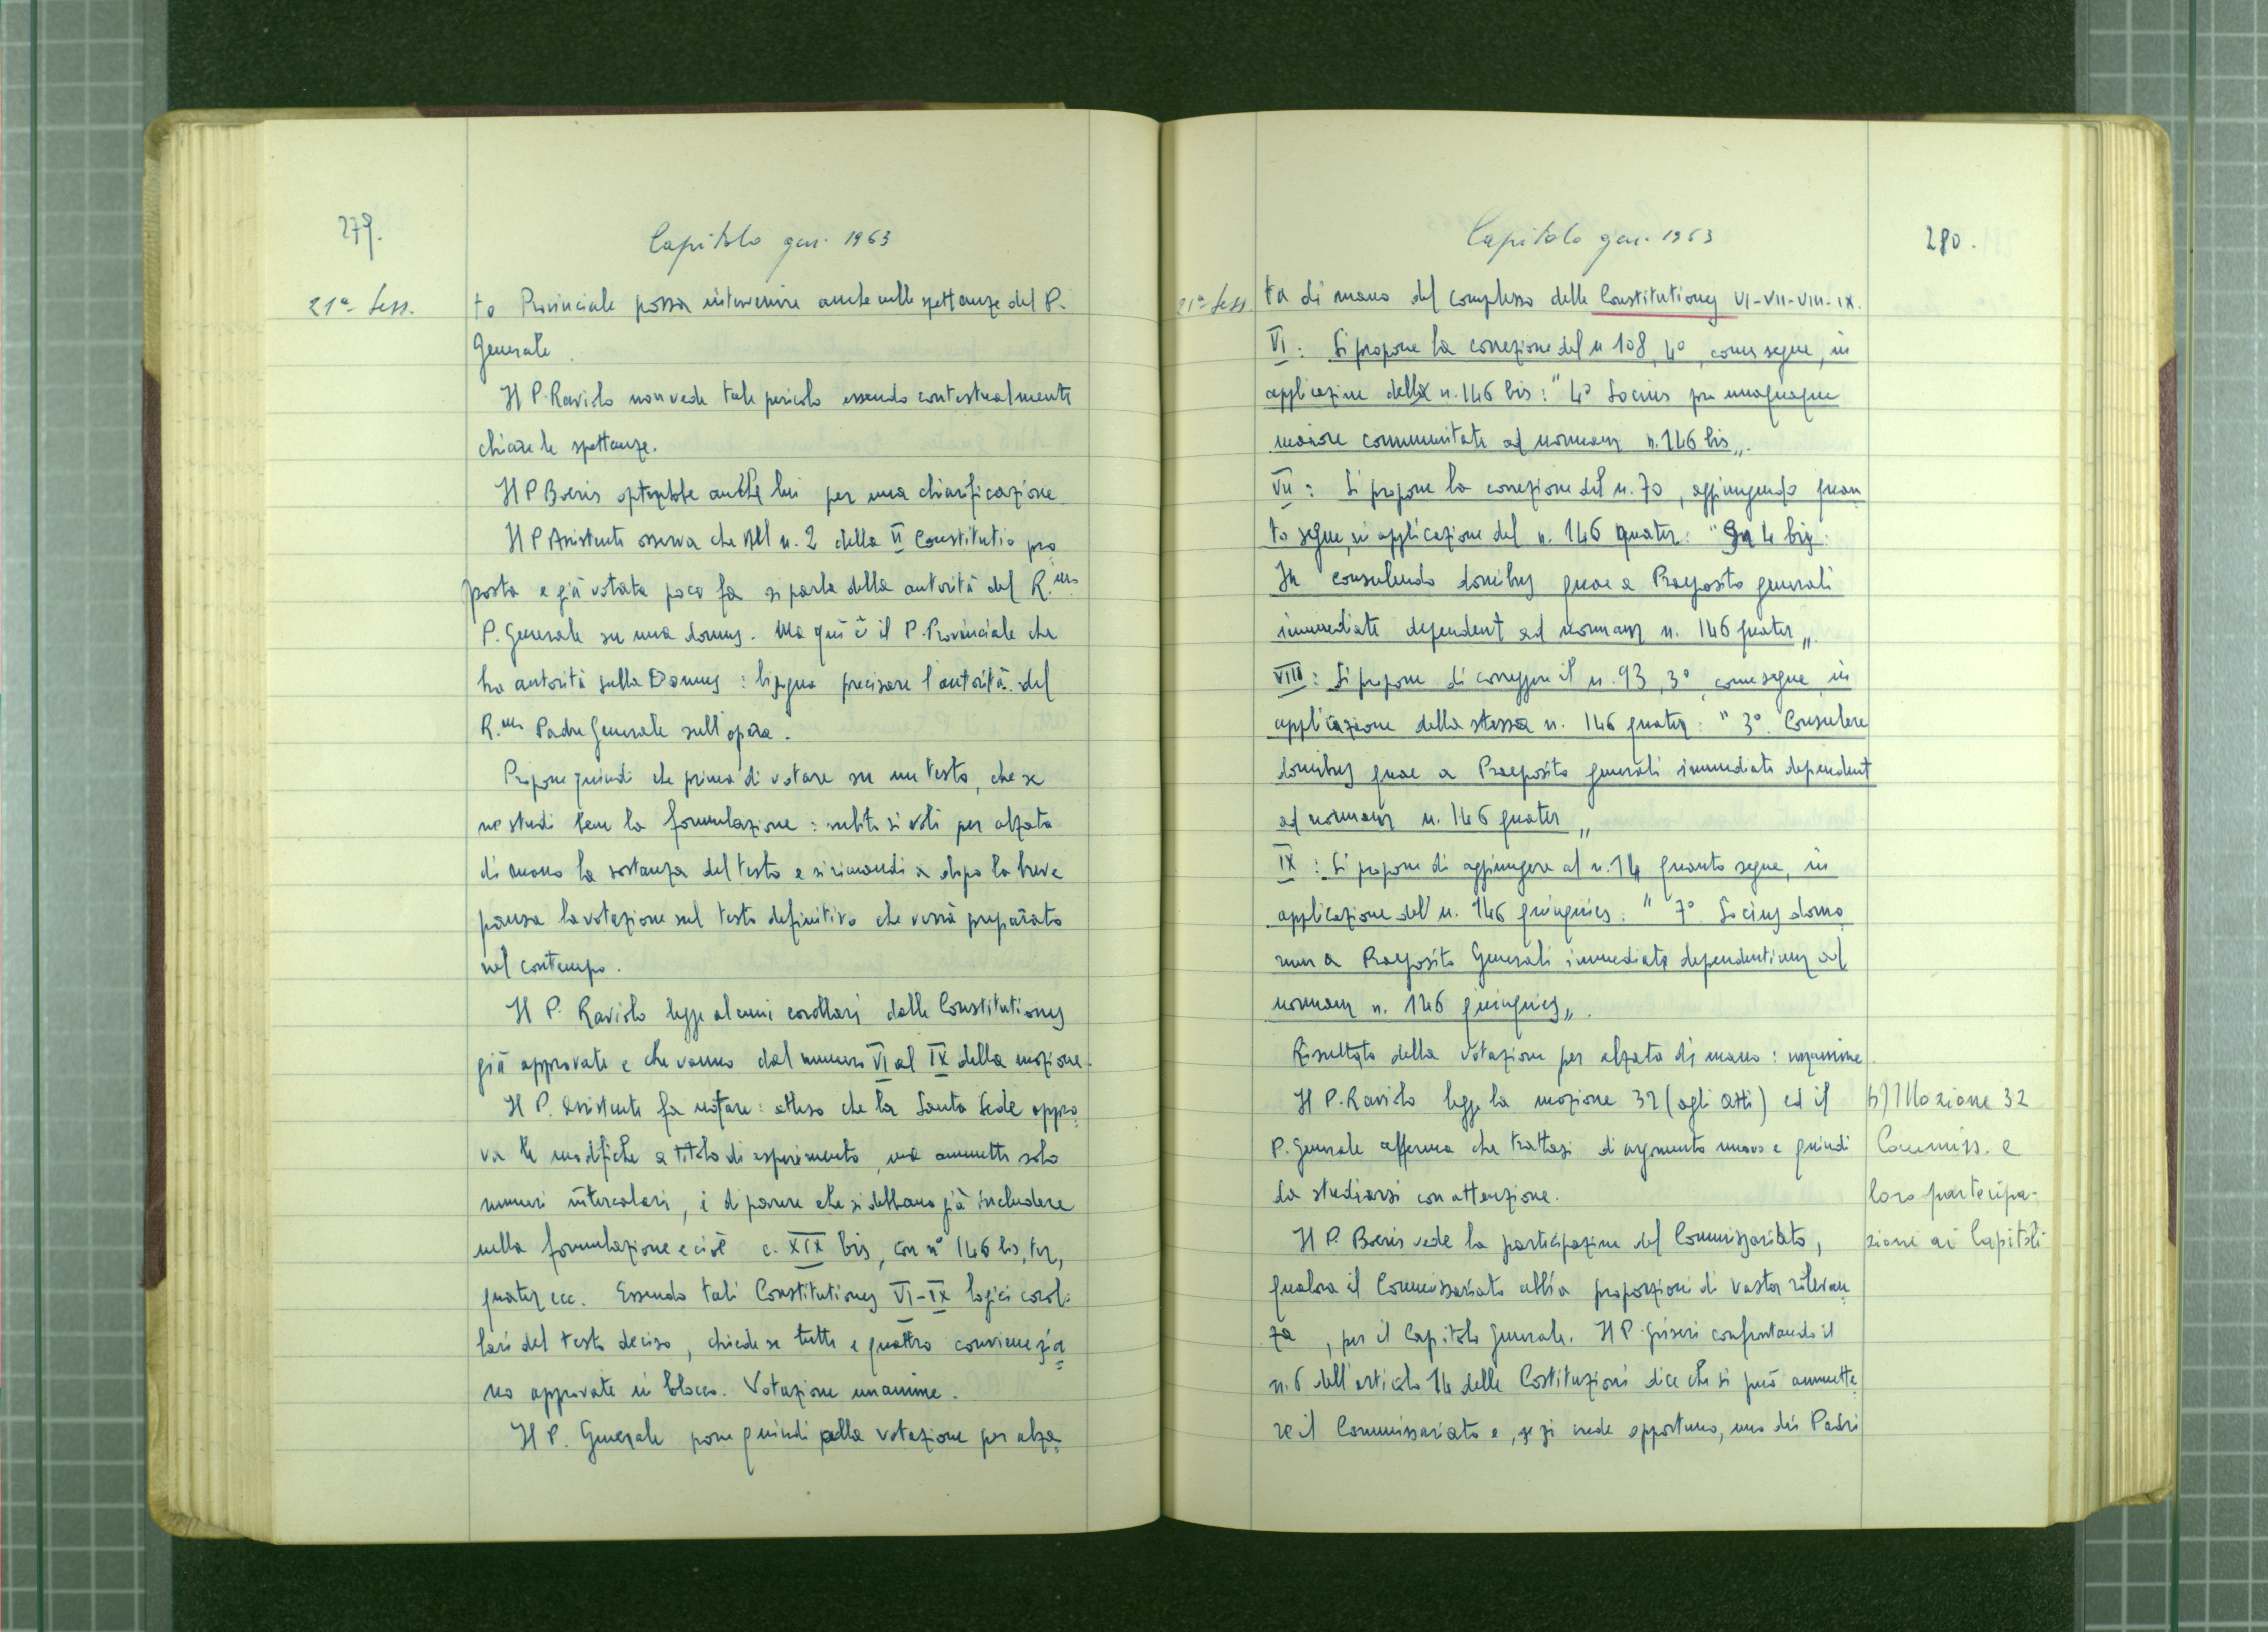 279.
Capitolo gen. 1963
21ª Sess.
to Provinciale possa intervenire anche nelle spettanze del P.
Generale.
Il P. Raviolo non vede tale pericolo essendo contestualmente
chiare le spettanze.
Il P Boeris opterebbe anche lui per una chiarificazione
Il P Assistente osserva che al n. 2 della II Constitutio pro
posta e già votata poco fa si parla della autorità del R.mo
P. Generale su una domus. Ma qui è il P. Provinciale che
ha autorità sulla Domus : bisogna precisare l'autorità del
R.mo Padre Generale sull'opera.
Propone quindi che prima di votare su un testo, che se
ne studi bene la formulazione : subito si voti per alzata
di mano la sostanza del testo e si rimandi a dopo la breve
pausa la votazione sul testo definitivo che verrà preparato
nel contempo.
Il P. Raviolo legge alcuni corollari delle Constitutiones
già approvate e che vanno dal numero VI al IX della mozione.
Il P. Assistente fa notare : atteso che la Santa Sede appro
va le modifiche a titolo di esperimento, ma ammette solo
numeri intercalari, è di parere che si debbano già includere
nella formulazione e cioè c. XIX bis, con n° 146 bis, ter,
quater ecc. Essendo tali Constitutiones VI-IX logici corol-
lari del testo deciso, chiede se tutte e quattro conviene sia
no approvate in blocco. Votazione unanime.
Il P. Generale pone quindi alla votazione per alza
280.
Capitolo gen. 1963
21ª Sess.
ta di mano del complesso delle Constitutiones VI-VII-VIII-IX.
VI : Si propone la correzione del n 108, 4°, come segue, in
applicazione della n. 146 bis : "4° Socius pro unaquaque
maiore communitate ad normam n. 146 bis".
VII : Si propone la correzione del n. 70, aggiungendo quan
to segue, in applicazione del n. 146 quater : "4 bis.
In consulendo domibus quae a Praeposito generali
immediate dependent ad normam n. 146 quater".
VIII : Si propone di correggere il n. 93, 3°, come segue, in
applicazione della stessa n. 146 quater : "3°. Consulere
domibus quae a Praeposito generali immediate dependent
ad normam n. 146 quater"
IX : Si propone di aggiungere al n. 14 quanto segue, in
applicazione del n. 146 quinquies : "7° Socius domo
rum a Praeposito Generali immediate dependentium ad
normam n. 146 quinquies".
Risultato della votazione per alzata di mano : unanime.
Il P. Raviolo legge la mozione 32 (agli atti) ed il
b) Mozione 32
P. Generale afferma che trattasi di argomento nuovo e quindi
Commiss. e
da studiarsi con attenzione.
loro partecipa-
Il P. Boeris vede la participazione del Commissariato,
zione ai Capitoli
qualora il Commissariato abbia proporzioni di vasta rilevan
za, per il Capitolo Generale. Il P. Griseri confrontando il
n. 6 dell'articolo 14 delle Costituzioni dice che si può ammette
re il Commissariato e, se si vede opportuno, uno dei Padri